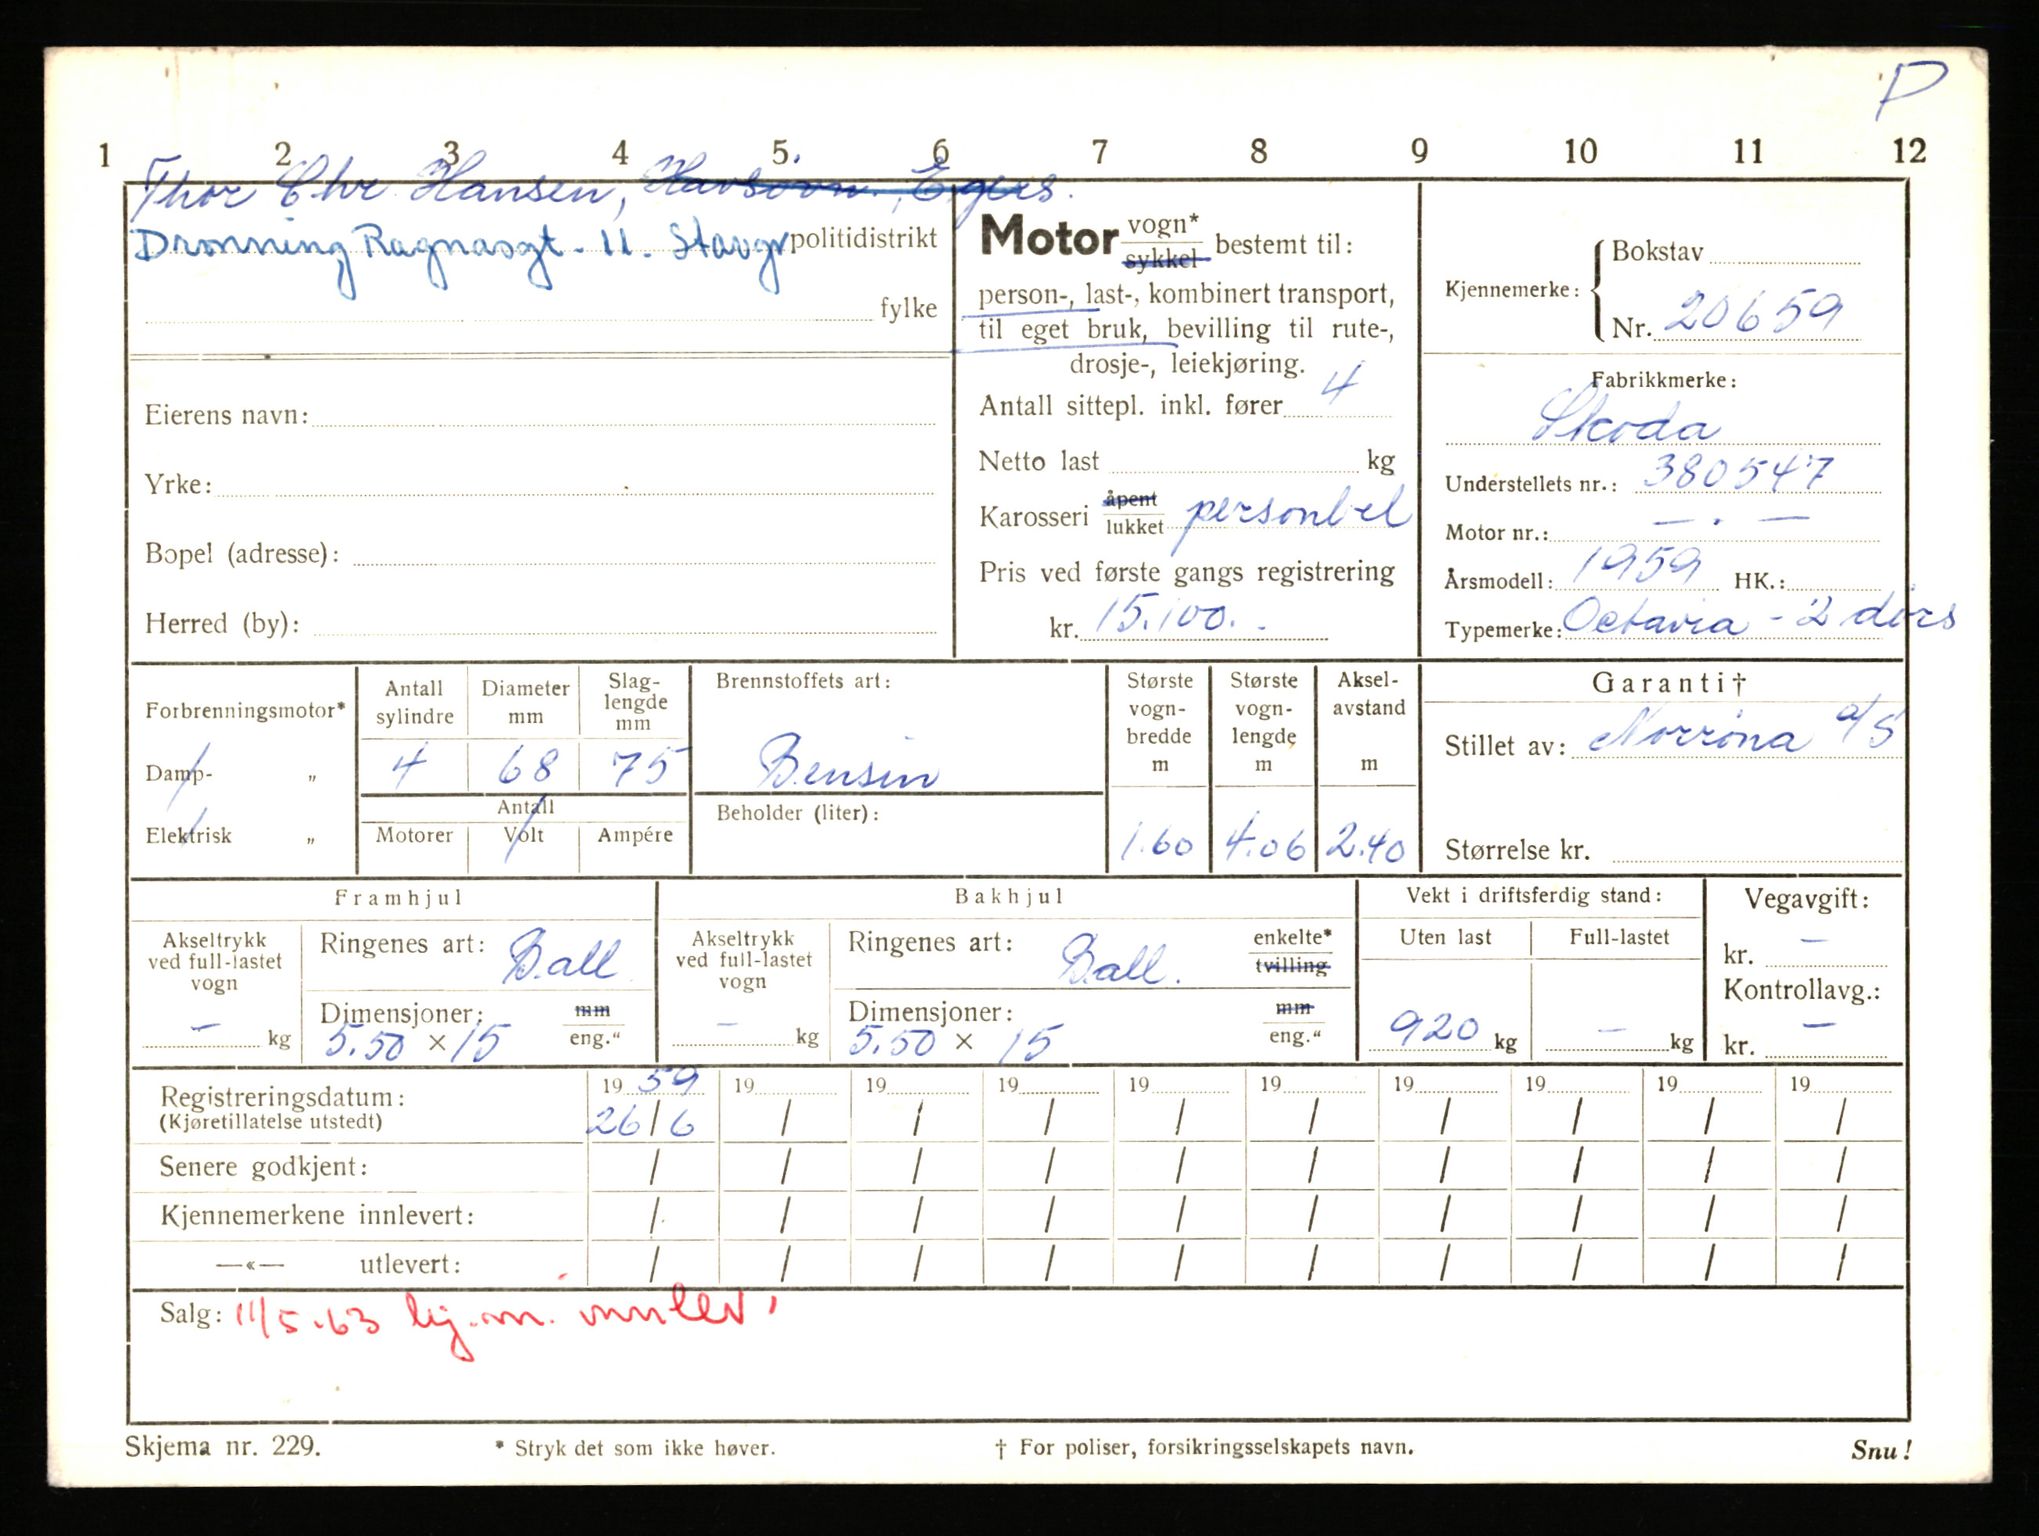 P
1 2 3 4 5 6 7 8 9 10 11 12
Thor Chr Hansen, Havsøvn, Egers.
Dronning Ragnasgt. 11. Stavgr politidistrikt
fylke
Eierens navn:
Yrke:
Bopel (adresse):
Herred (by):
Motor vogn*
sykkel bestemt til:
person-, last-, kombinert transport,
til eget bruk, bevilling til rute-,
drosje-, leiekjøring.
Antall sittepl. inkl. fører 4
Netto last kg
Karosseri åpent
lukket personbil
Pris ved første gangs registrering
kr. 15.100.-
Kjennemerke: Bokstav
Nr. 20659
Fabrikkmerke:
Skoda
Understellets nr.: 380547
Motor nr.: — . —
Årsmodell: 1959 HK.:
Typemerke: Octavia - 2 dørs
Forbrenningsmotor*
Damp- „
Elektrisk „
Antall sylindre
4
Diameter mm
68
Slag-
lengde
mm
75
Antall
Motorer Volt Ampére
Brennstoffets art:
Bensin
Beholder (liter):
Største
vogn-
bredde
m
1.60
Største
vogn-
lengde
m
4.06
Aksel-
avstand
m
2.40
Garanti†
Stillet av: Norrøna a/s
Størrelse kr.
Framhjul
Akseltrykk
ved full-lastet
vogn
— kg
Ringenes art: Ball.
Dimensjoner: mm
5.50 × 15 eng."
Bakhjul
Akseltrykk
ved full-lastet
vogn
— kg
Ringenes art: Ball. enkelte*
tvilling
Dimensjoner: mm
5.50 × 15 eng."
Vekt i driftsferdig stand:
Uten last Full-lastet
920 kg — kg
Vegavgift:
kr. —
Kontrollavg.:
kr. —
Registreringsdatum: 19 59 19 19 19 19 19 19 19 19 19
(Kjøretillatelse utstedt) 26/6 / / / / / / / / /
Senere godkjent: / / / / / / / / / /
Kjennemerkene innlevert: / / / / / / / / / /
—«— utlevert: / / / / / / / / / /
Salg: 11/5.63 kj.m. innlev.
Skjema nr. 229. * Stryk det som ikke høver. † For poliser, forsikringsselskapets navn. Snu!